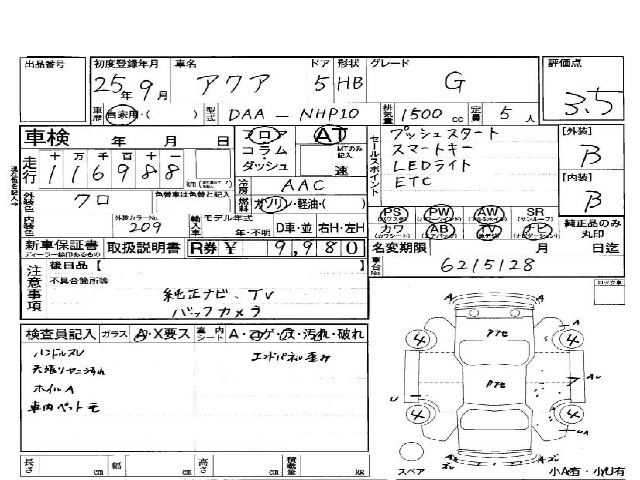 出品番号 初度登録年月 車名 ドア 形状 グレード 評価点
25年 9月 アクア 5 HB G 3.5
車歴 自家用・( ) 型式 DAA-NHP10 排気量 1500 cc 定員 5 人
車検 年 月 日 フロア AT セールスポイント プッシュスタート [外装]
コラム・ダッシュ MTのみ記入 速 スマートキー B
走行 十万千百十一 LEDライト [内装]
116988 km 冷房 AAC ETC B
外装色 クロ 色替車は色替と記入 燃料 ガソリン・軽油・( )
内装色 外装カラーNo. 209 輸入車 モデル年式 年・不明 D車・並 右H・左H
PS PW AW SR 純正品のみ丸印
カワ AB TV ナビ
新車保証書 取扱説明書 R券 ¥ 9,980 名変期限 月 日迄
ディーラー捺印あるもの
車台No. 6215128
注意事項 後日品【 】
不具合箇所等
純正ナビ、TV
バックカメラ
ロック車
検査員記入 ガラス A・X要ス 車内シート A・コゲ・穴・汚れ・破れ
ハンドルスレ エンドパネル歪み
ホイルA
車内ペット毛
長さ cm 幅 cm 高さ cm 積載量 kg
スペア 小A有・小U有